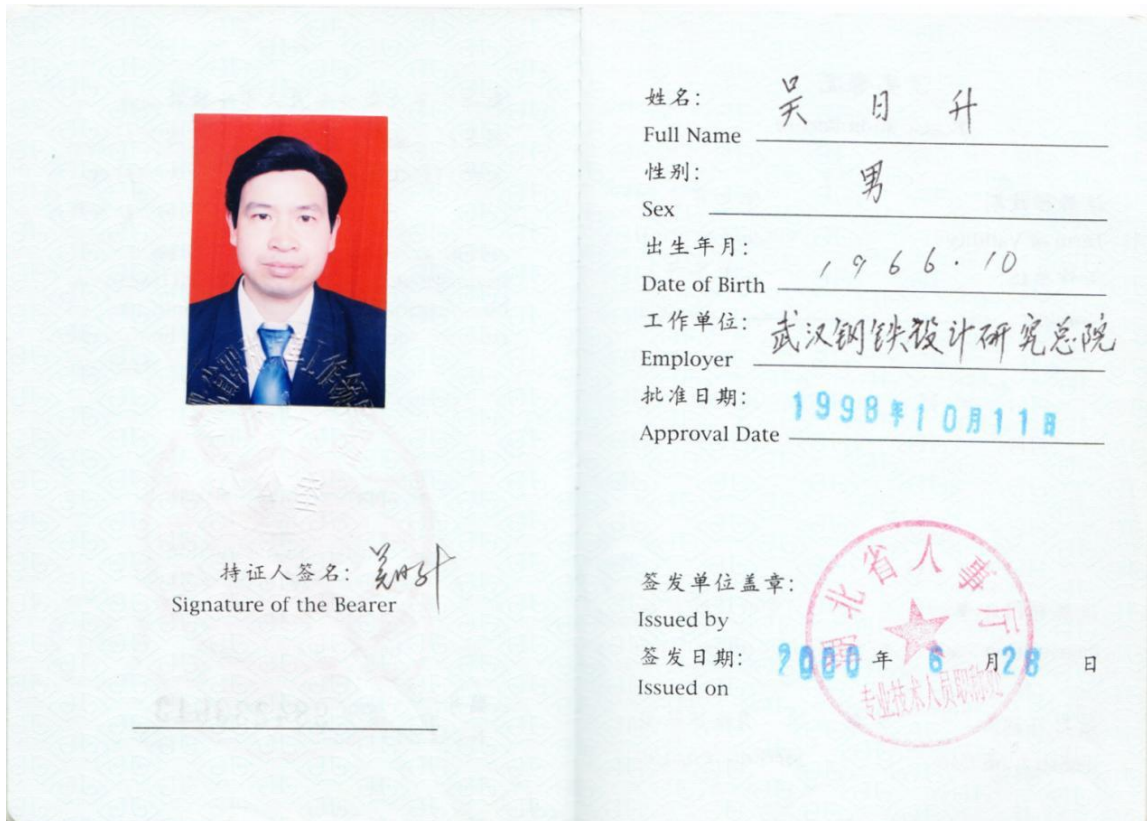 持证人签名：
Signature of the Bearer
姓名： 吴日升
Full Name
性别： 男
Sex
出生年月： 1966.10
Date of Birth
工作单位： 武汉钢铁设计研究总院
Employer
批准日期： 1998年10月11日
Approval Date
签发单位盖章：
Issued by
省人事厅
签发日期： 2000年6月28日
Issued on
专业技术人员职称